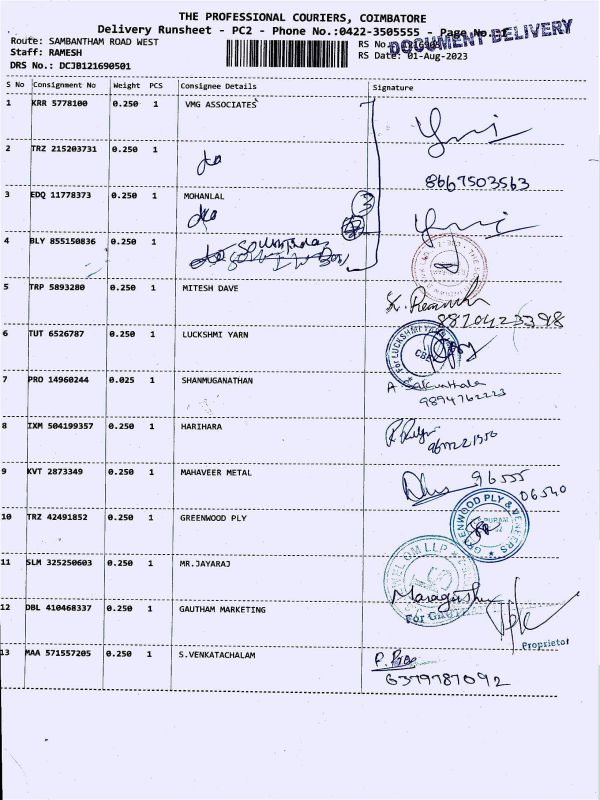 THE PROFESSIONAL COURIERS, COIMBATORE
Delivery Runsheet - PC2 - Phone No.:0422-3505555 - Page No.
DOCUMENT DELIVERY
Route: SAMBANTHAM ROAD WEST
RS No.
Staff: RAMESH
RS Date: 01-Aug-2023
DRS No.: DCJB121690501
S No Consignment No Weight PCS Consignee Details Signature
1 KRR 5778100 0.250 1 VMG ASSOCIATES
2 TRZ 215203731 0.250 1
8667503563
3 EDQ 11778373 0.250 1 MOHANLAL
3
4 BLY 855150836 0.250 1
5 TRP 5893280 0.250 1 MITESH DAVE
8870423398
6 TUT 6526787 0.250 1 LUCKSHMI YARN
For LUCKSHMI YARN
CBE
7 PRO 14960244 0.025 1 SHANMUGANATHAN
A Sakunthala
9894762223
8 IXM 504199357 0.250 1 HARIHARA
9 KVT 2873349 0.250 1 MAHAVEER METAL
96555
06540
10 TRZ 42491852 0.250 1 GREENWOOD PLY
GREENWOOD PLY & VENEERS
11 SLM 325250603 0.250 1 MR.JAYARAJ
12 DBL 410468337 0.250 1 GAUTHAM MARKETING
Proprietor
13 MAA 571557205 0.250 1 S.VENKATACHALAM
6379787092